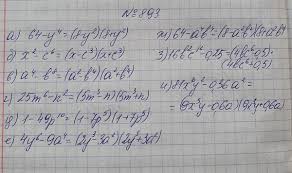 № 893
а) 64-y⁴=(8-y²)(8+y²)
б) x²-c⁶=(x-c³)(x+c³)
в) a⁴-b⁸=(a²-b⁴)(a²+b⁴)
г) 25m⁶-n²=(5m³-n)(5m³+n)
д) 1-49p¹⁰=(1-7p⁵)(1+7p⁵)
е) 4y⁶-9a⁴=(2y³-3a²)(2y³+3a²)
ж) 64-a⁴b⁴=(8-a²b²)(8+a²b²)
з) 16b²c¹²-0,25=(4bc⁶-0,5)·
·(4bc⁶+0,5)
и) 81x⁶y²-0,36a²=
=(9x³y-0,6a)(9x³y+0,6a)